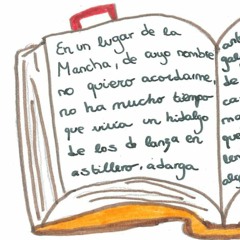 En un lugar de la
Mancha, de cuyo nombre
no quiero acordarme,
no ha mucho tiempo
que vivía un hidalgo
de los d lanza en
astillero, adarga